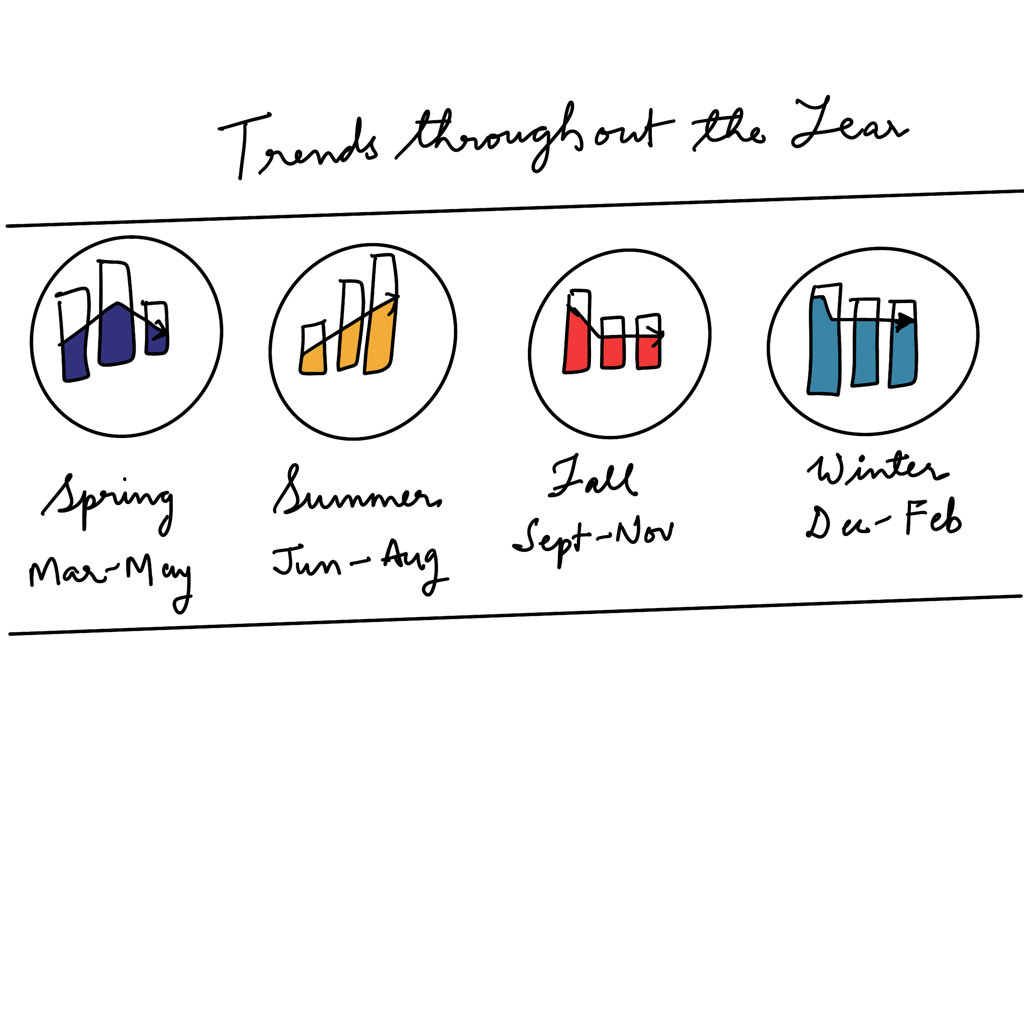 Trends throughout the Year
Spring
Mar-May
Summer
Jun-Aug
Fall
Sept-Nov
Winter
Dec-Feb